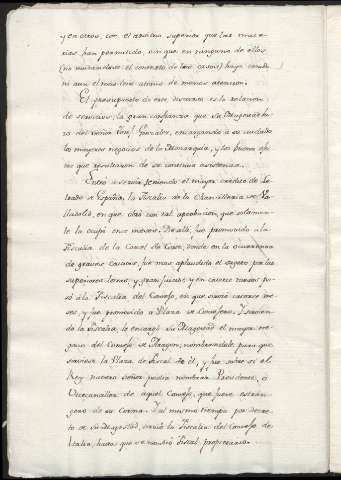 y en otros, con el ascenso superior que las mate-
rias han permitido, sin que en ninguno de ellos
(no mudandose el contexto de los casos) haya
ni aun el mas leve atomo de menos atencion.
El presupuesto de este discurso es la relacion
de servicios, la gran confianza que su Magestad hi-
zo del señor Gonzalez, encargando a su cuidado
los mayores negocios de la Monarquia, y los buenos efec-
tos que resultaron de su continua asistencia.
Entró a servir teniendo el mayor credito de Le-
trado de España, la Fiscalia de la Chancilleria de Va-
lladolid, en que obró con tal aprobacion, que solamen-
te la ocupó once meses. De alli, fue promovido a la
Fiscalia de la Carcel de Corte, donde en la ocurrencia
de graves causas, fue mas aplaudido el sugeto por las
superiores letras, y gran juicio; y en catorce meses pa-
só á la Fiscalia del Consejo, en que sirvió catorce me-
ses, y fue promovido a Plaza de Consejero. Y saliendo
de la Fiscalia, le encargó su Magestad el mayor ne-
gocio del Consejo de Aragon, nombrandole para que
sirviese la Plaza de Fiscal de él, y fue sobre si el
Rey nuestro señor podia nombrar Presidente, ó
Vicecanciller de aquel Consejo, que fuese estran-
gero de su Corona. Y al mismo tiempo por decre-
to de su Magestad, sirvió la Fiscalia del Consejo de
Italia, hasta que se nombró Fiscal propietario.